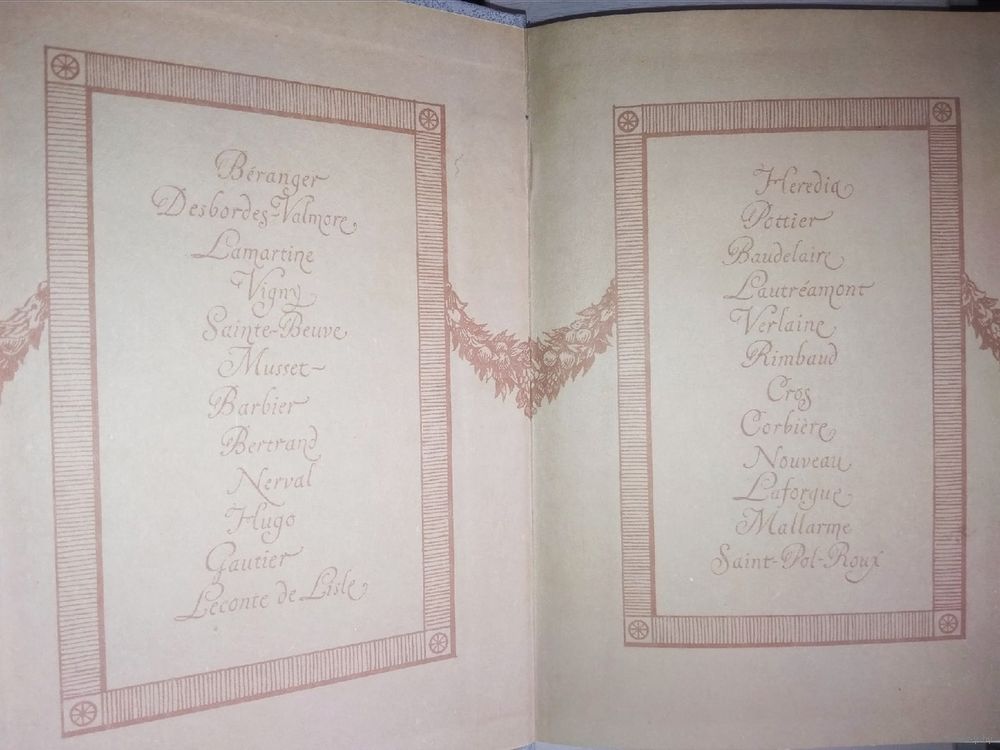 Béranger
Desbordes-Valmore
Lamartine
Vigny
Sainte-Beuve
Musset
Barbier
Bertrand
Nerval
Hugo
Gautier
Leconte de Lisle
Heredia
Pottier
Baudelaire
Lautréamont
Verlaine
Rimbaud
Cros
Corbière
Nouveau
Laforgue
Mallarme
Saint-Pol-Roux